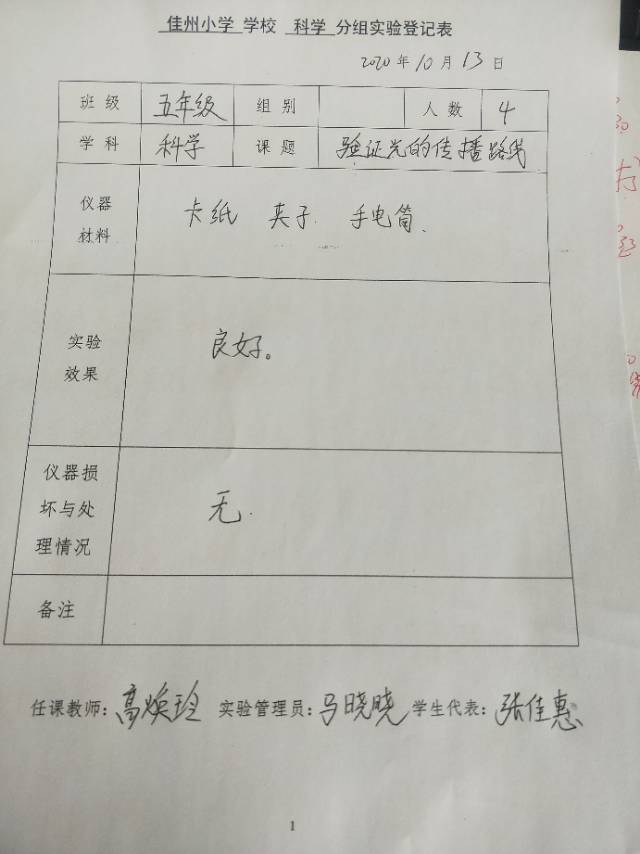 佳州小学 学校 科学 分组实验登记表
2020 年 10 月 13 日
班级 五年级 组别 人数 4
学科 科学 课题 验证光的传播路线
仪器 材料 卡纸 夹子 手电筒.
实验 效果 良好。
仪器损 坏与处 理情况 无.
备注
任课教师: 高焕玲 实验管理员: 马晓晓 学生代表: 张佳惠
1